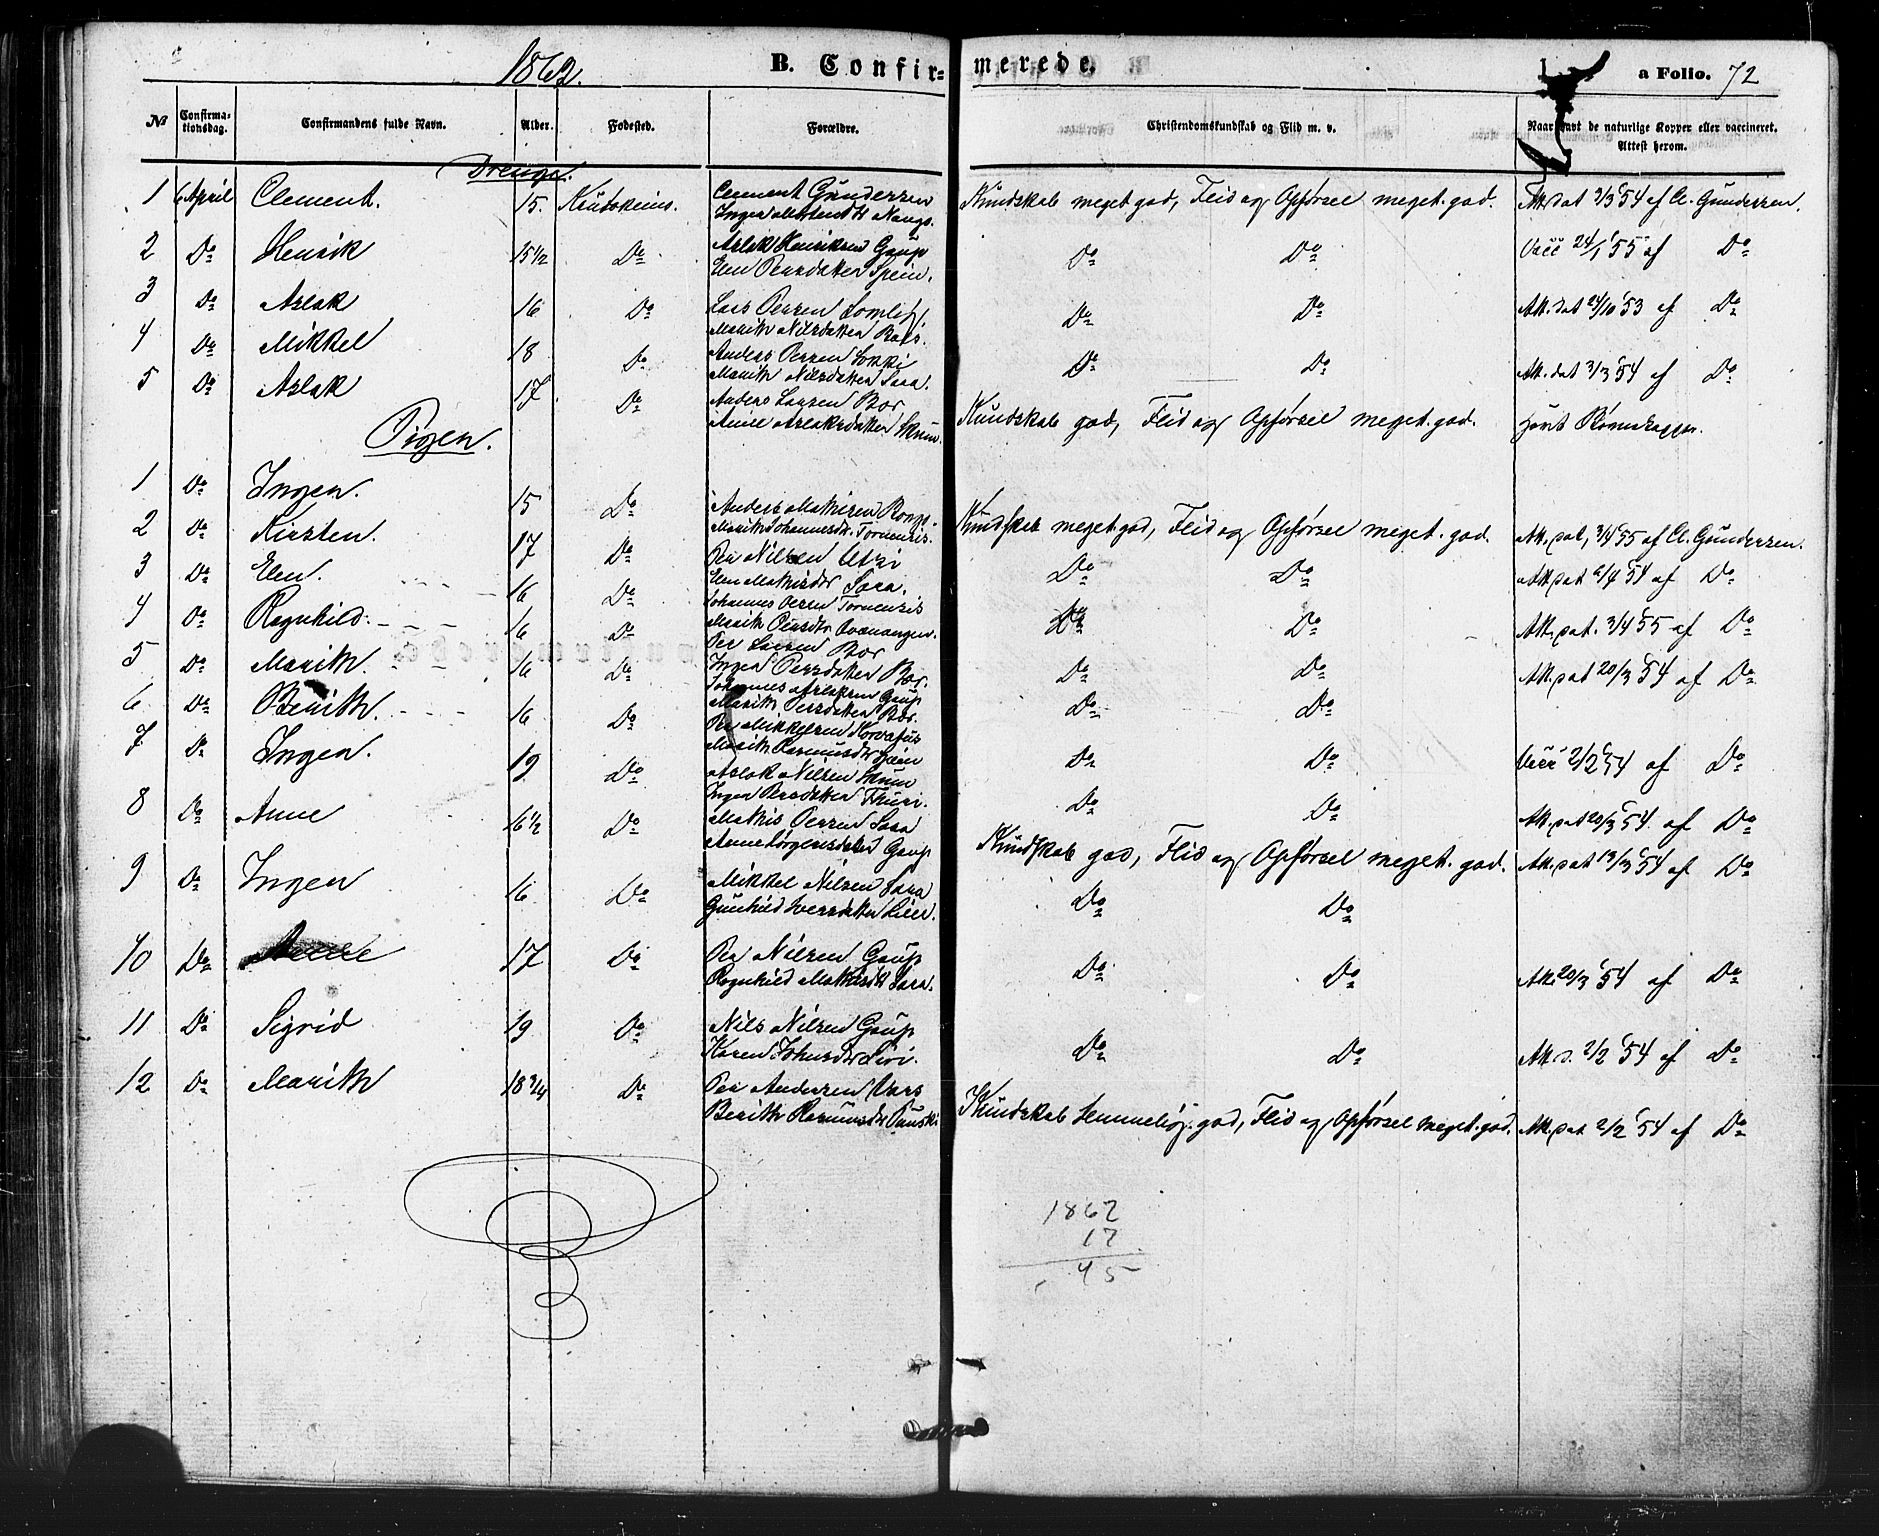 1862. B. Confirmerede. a Folio. 72
No Confirmationsdag. Confirmandens fulde Navn. Alder. Fødested. Forældre. Christendomskundskab og Flid m. v. Naar havt de naturlige Kopper eller vaccineret. Attest herom.
Drenge.
1 6 April Clement. 15. Kautokeino. Clement Gundersen Kundskab meget god, Flid og Opførsel meget god. Att. dat 3/3 54 af Cl. Gundersen.
Ingen
2 Do Henrik 15 1/2 Do Aslak Henriksen Gaup Do Do Vacc 24/1 55 af Do
Elen Persdatter Spein.
3 Do Aslak 16 Do Lars Persen Do Do Att. dat 24/10 53 af Do
Marith Nilsdatter
4 Do Mikkel 18 Do Anders Persen Do Do Att. dat 3/3 54 af Do
Marith Nilsdatter Sara.
5 Do Aslak 17 Do Anders Larsen Bær Kundskab god, Flid og Opførsel meget god.
Anne Aslaksdatter Skum
Piger.
1 Do Ingen. 15 Do Anders Mathisen Kundskab meget god, Flid og Opførsel meget god. Att. dat, 3/4 55 af Cl. Gundersen.
Marith Johannesdt. Tornensis.
2 Do Kirsten. 17 Do Per Nilsen Utsi Do Do Att dat 6/4 54 af Do
Elen Mathisdtr Sara.
3 Do Elen. 16 Do Johannes Persen Tornensis Do Do Att. dat. 3/4 55 af Do
Marith Persdtr Qvænangen.
4 Do Ragnhild. 16 Do Per Larsen Bær Do Do Att. dat 20/3 54 af Do
Ingen Persdatter Bær.
5 Do Marith. 16 Do Johannes Aslaksen Gaup Do Do
Marith Persdatter Bær.
6 Do Berith. 16 Do Per Mikkelsen Do Do Vacc 2/2 54 af Do
Marith Rasmusdtr Spein
7 Do Ingen. 19 Do Aslak Nilsen Skum Do Do Att. dat 20/3 54 af Do
Ingen Persdatter Thuri.
8 Do Anne 16 1/2 Do Mathis Persen Sara Kundskab god, Flid og Opførsel meget god. Att. dat 13/3 54 af Do
Anne Jørgensdatter Gaup
9 Do Ingen 16 Do Mikkel Nilsen Sara Do Do
Gunhild Iversdatter
10 Do 17 Do Per Nilsen Gaup Do Do Att. 20/3 54 af Do
Ragnhild Mathisdt Sara.
11 Do Sigrid 19 Do Nils Nilsen Gaup Do Do Att. d. 2/2 54 af Do
Karen Johnsdtr Siri.
12 Do Marith 18 3/4 Do Per Andersen Vars Kundskab temmelig god, Flid og Opførsel meget god. Att. dat 2/2 54 af Do
Berith Rasmusdtr
1862
17
45